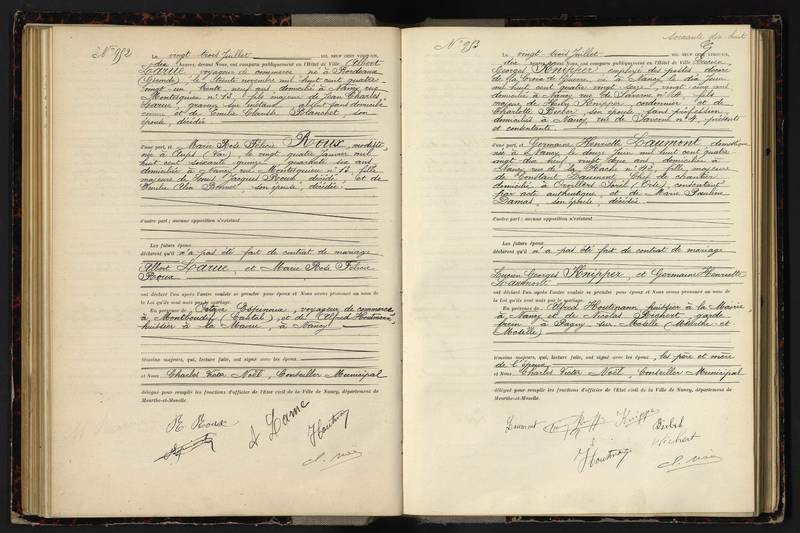 N° 952
Le vingt trois Juillet MIL NEUF CENT VINGT-UN,
dix heures, devant Nous, ont comparu publiquement en l'Hôtel de Ville Albert
Larue, voyageur de commerce, né à Bordeaux
(Gironde), le trente novembre mil huit cent quatre
vingt un, trente neuf ans, domicilié à Nancy, rue
Montesquieu n° 13, fils majeur de Jean Charles
Larue, graveur sur métaux, absent sans domicile
connu et de Emilie Claude Blanchet, son
épouse, décédée
d'une part, et Marie Rose Félicie Roux, modiste
née à Aups (Var), le vingt quatre Janvier mil
huit cent soixante quinze, quarante six ans
domiciliée à Nancy, rue Montesquieu n° 13, fille
majeure de Roux, décédé, et de
son épouse, décédée.
d'autre part ; aucune opposition n'existant
Les futurs époux
déclarent qu'il n'a pas été fait de contrat de mariage
Albert Larue, et Marie Rose Félicie
Roux
ont déclaré l'un après l'autre vouloir se prendre pour époux et Nous avons prononcé au nom de
la Loi qu'ils sont unis par le mariage.
En présence de Espinasse, voyageur de commerce
à Montboudif (Cantal), et de Alfred Houtmann
huissier à la Mairie, à Nancy
témoins majeurs, qui, lecture faite, ont signé avec les époux
et Nous Charles Victor Noël, Conseiller Municipal
délégué pour remplir les fonctions d'officier de l'Etat civil de la Ville de Nancy, département de
Meurthe-et-Moselle.
R. Roux
A Larue
Houtmann
C. Noël
Soixante dix huit
N° 953
Le vingt trois Juillet MIL NEUF CENT VINGT-UN,
dix heures, devant Nous, ont comparu publiquement en l'Hôtel de Ville Lucien
Georges Knipper, employé des postes, décoré
de la Croix de Guerre, né à Nancy, le dix Juin
mil huit cent quatre vingt seize, vingt cinq ans
domicilié à Nancy, rue de Saverne n° 4, fils
majeur de Knipper, cordonnier, et de
Charlotte Berlet, son épouse, sans profession
domiciliés à Nancy, rue de Saverne n° 4, présents
et consentants
d'une part, et Germaine Henriette Laumont, domestique
née à Nancy, le douze Juin mil huit cent quatre
vingt dix neuf, vingt deux ans, domiciliée à
Nancy, rue de la Hache n° 92, fille majeure
de Constant Laumont, chef de chantier
domicilié à Orvillers Sorel (Oise), consentant
par acte authentique, et de Marie Pauline
Damas, son épouse, décédée
d'autre part ; aucune opposition n'existant
Les futurs époux
déclarent qu'il n'a pas été fait de contrat de mariage
Lucien Georges Knipper, et Germaine Henriette
Laumont
ont déclaré l'un après l'autre vouloir se prendre pour époux et Nous avons prononcé au nom de
la Loi qu'ils sont unis par le mariage.
En présence de Alfred Houtmann, huissier à la Mairie
à Nancy et de Nicolas Richert, garde
frein, à Pagny-sur-Moselle (Meurthe-et
Moselle)
témoins majeurs, qui, lecture faite, ont signé avec les époux, les père et mère
de l'époux
et Nous Charles Victor Noël, Conseiller Municipal
délégué pour remplir les fonctions d'officier de l'Etat civil de la Ville de Nancy, département de
Meurthe-et-Moselle.
Laumont Knipper Berlet
Richert
Houtmann
C. Noël